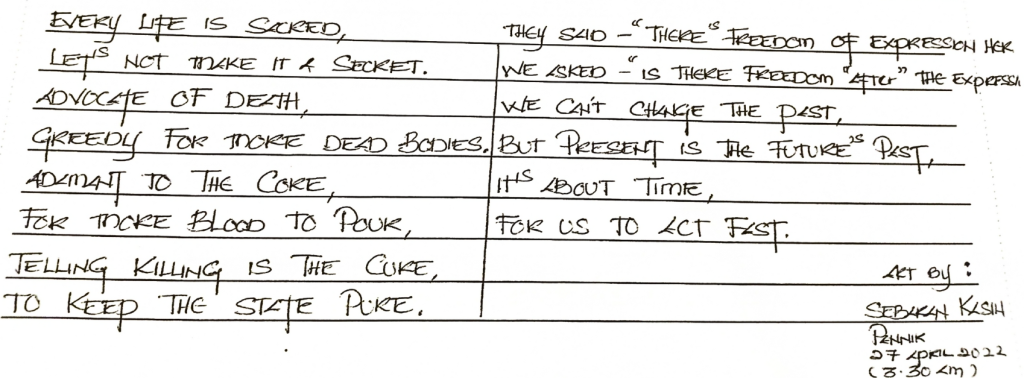 EVERY LIFE IS SACRED,
LET'S NOT MAKE IT A SECRET.
ADVOCATE OF DEATH,
GREEDY FOR MORE DEAD BODIES.
ADAMANT TO THE CORE,
FOR MORE BLOOD TO POUR,
TELLING KILLING IS THE CURE,
TO KEEP THE STATE PURE.
THEY SAID - "THERE"S FREEDOM OF EXPRESSION HER
WE ASKED - "IS THERE FREEDOM "AFTER" THE EXPRESSI
WE CAN'T CHANGE THE PAST,
BUT PRESENT IS THE FUTURE'S PAST,
IT'S ABOUT TIME,
FOR US TO ACT FAST.
ART BY :
SEBARAN KASIH
PANNIR
27 APRIL 2022
(8.30 AM)